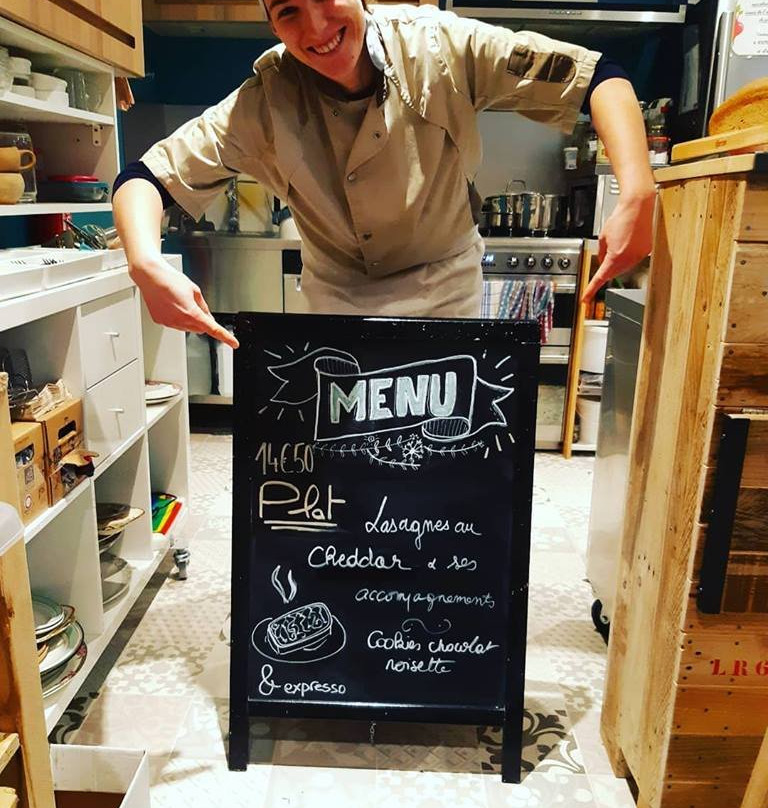 MENU
14€50
Plat
Lasagnes au
Cheddar & ses
accompagnements
Cookies chocolat
noisette
& expresso
LR6